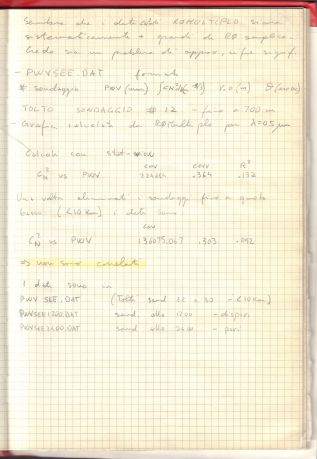 Sembra che i dati di R0MULTIPLO siano
sistematicamente + grandi di R0 semplice.
Credo sia un problema di appros, n fic signif.
- PWVSEE.DAT formato
# sondaggio PWV (mm) r.o(m)
TOLTO SONDAGGIO # 12 - fino a 700 m
- Grafici calcolati da R0Multiplo per λ=0.5 μm
Calcoli con stat-
cov corr R²
C_N² vs PWV .364 .132
Una volta eliminati i sondaggi fino a quota
bassa (<10 km) i dati sono:
cov
C_N² vs PWV 136075.067 .303 .092
⇒ non sono correlati
I dati sono in
PWVSEE.DAT (Tolti sond 22 e 30 - <10km)
PWVSE1200.DAT sond. alle 1200 - dispari
PWVSE2400.DAT sond alle 2400 - pari